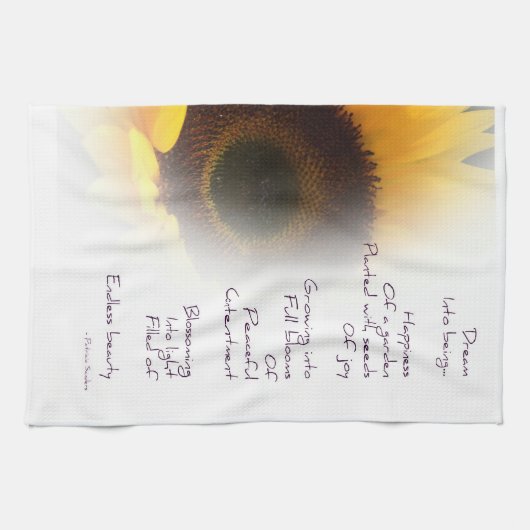 Dream
Into being...
Happiness
Of a garden
Planted with seeds
Of joy
Growing into
Full blooms
Of
Peaceful
Contentment
Blossoming
Into light
Filled of
Endless beauty